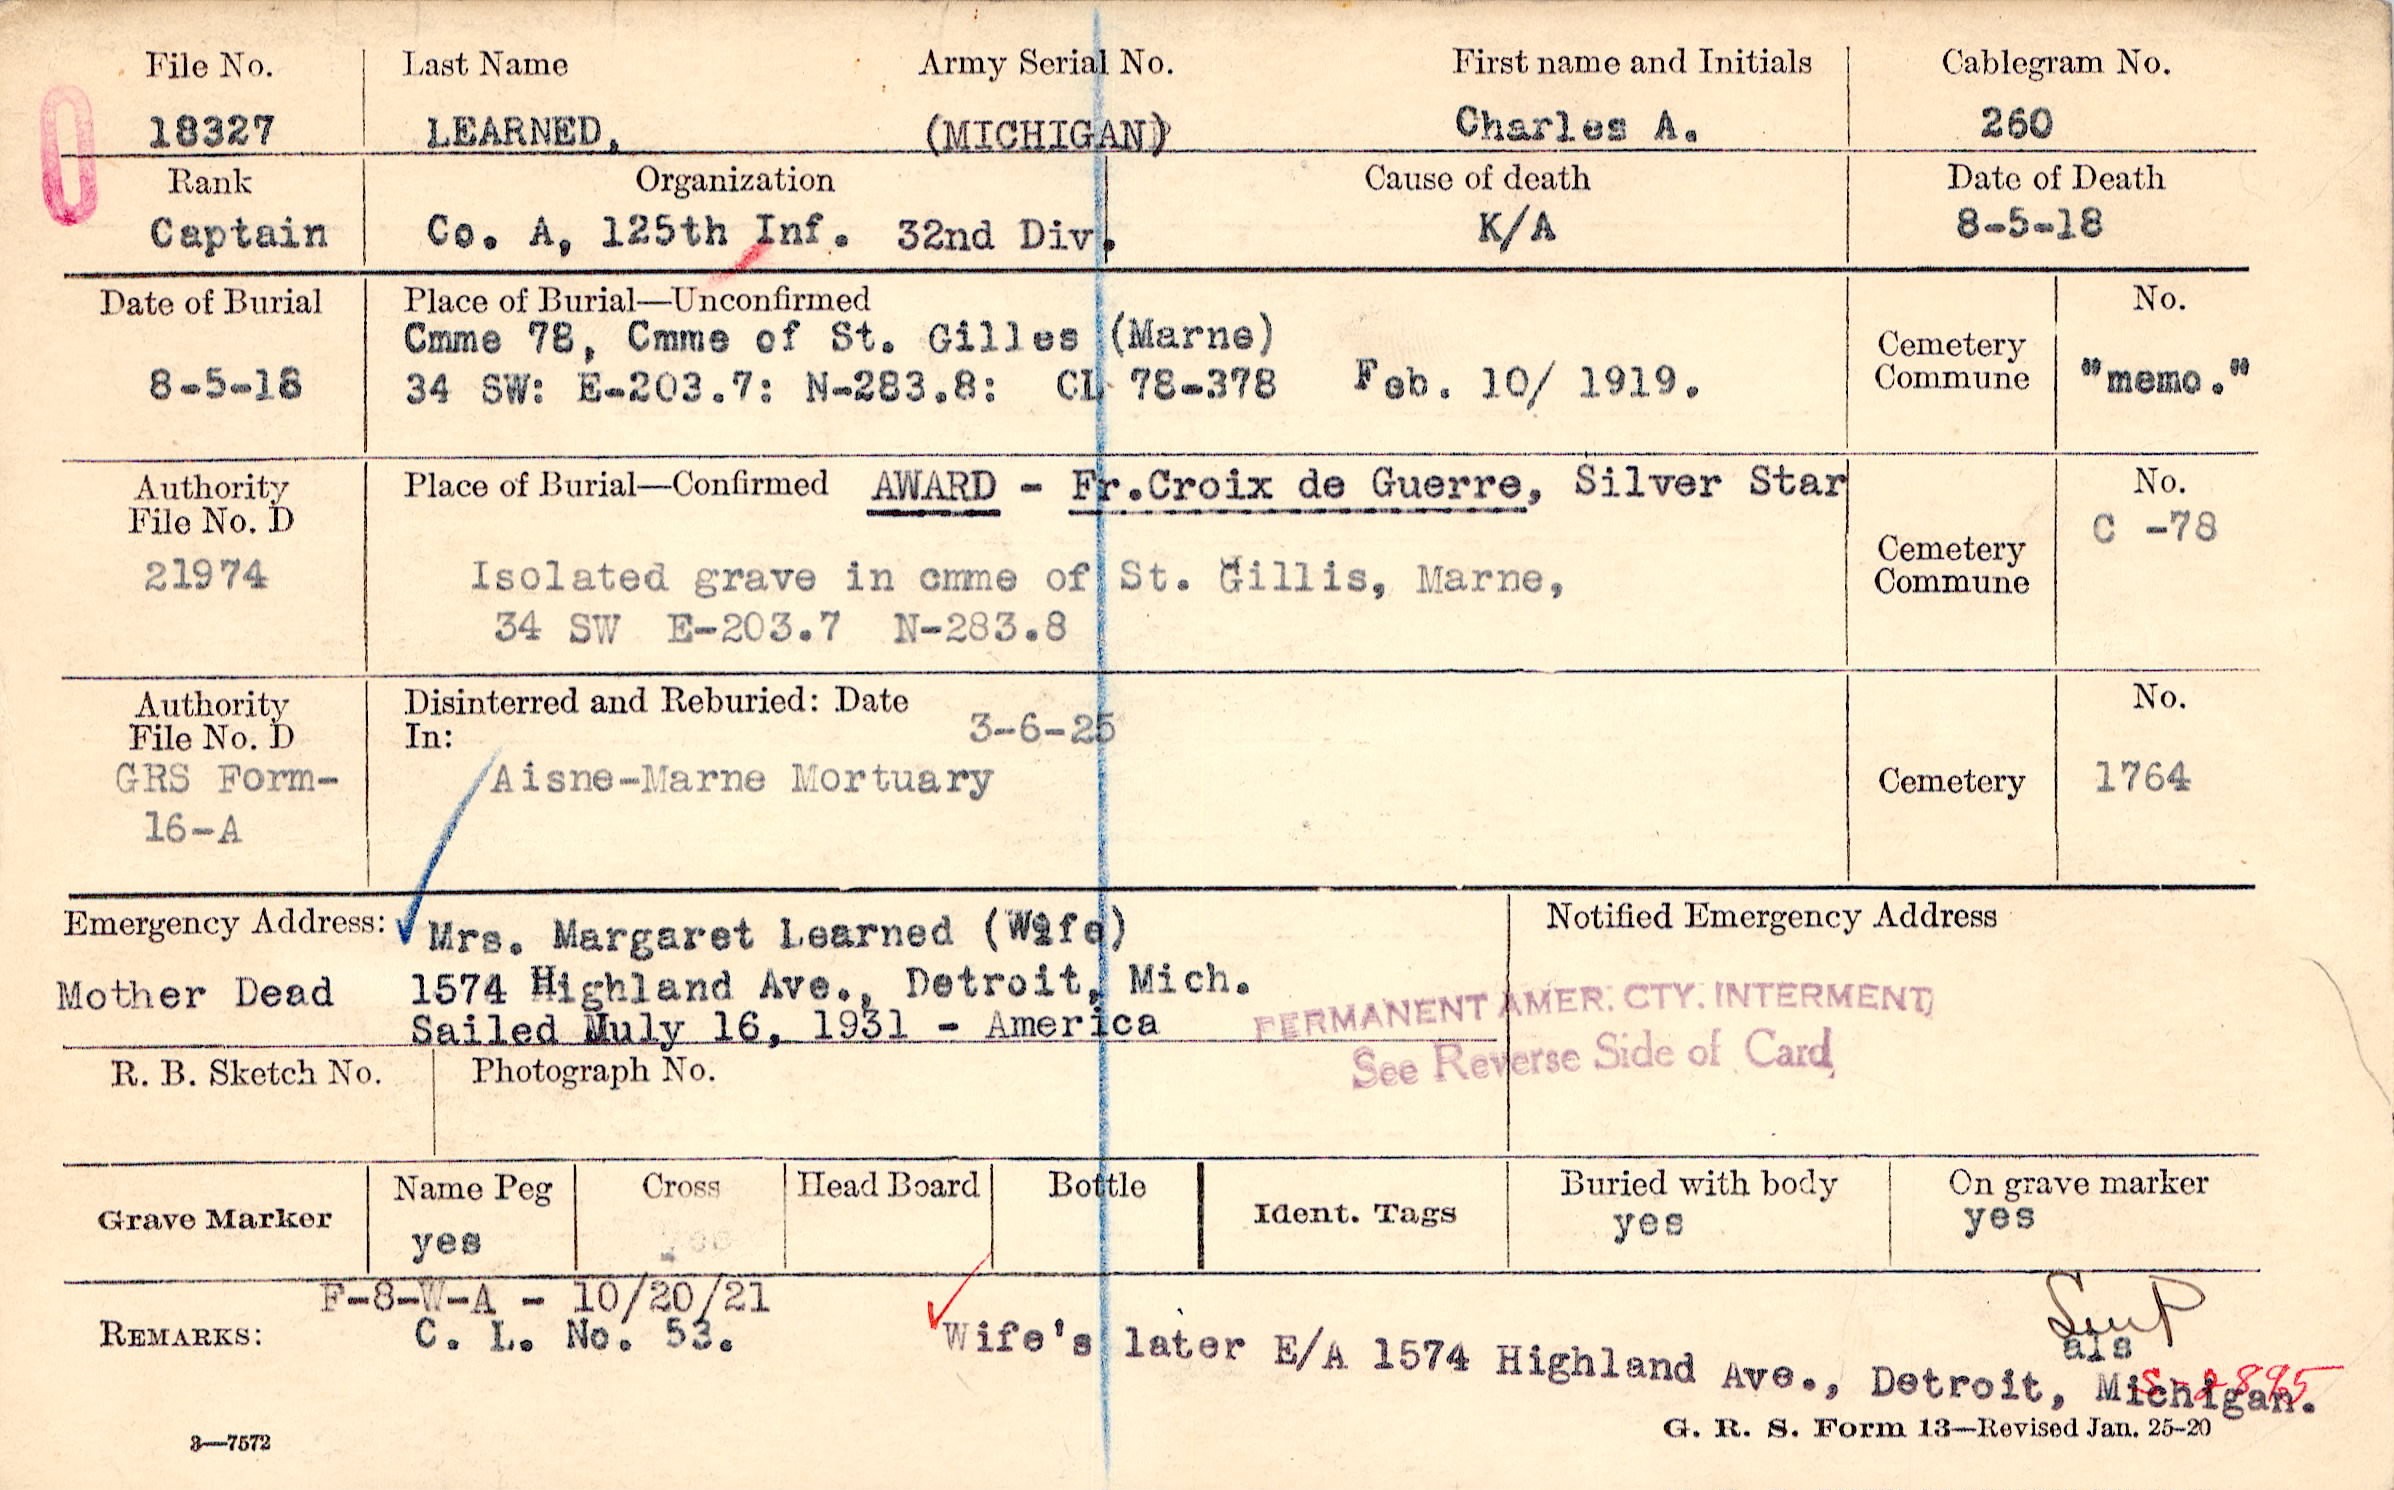 File No. Last Name Army Serial No. First name and Initials Cablegram No.
18327 LEARNED, (MICHIGAN) Charles A. 260
Rank Organization Cause of death Date of Death
Captain Co. A, 125th Inf. 32nd Div. K/A 8-5-18
Date of Burial Place of Burial—Unconfirmed No.
Cmme 78, Cmme of St. Gilles (Marne)
Cemetery
8-5-18 34 SW: E-203.7: N-283.8: CL 78-378 Feb. 10/ 1919. Commune "memo."
Authority Place of Burial—Confirmed AWARD - Fr.Croix de Guerre, Silver Star No.
File No. D C -78
21974 Isolated grave in cmme of St. Gillis, Marne, Cemetery
Commune
34 SW E-203.7 N-283.8
Authority Disinterred and Reburied: Date No.
File No. D In: 3-6-25
GRS Form- Aisne-Marne Mortuary Cemetery 1764
16-A
Emergency Address: Mrs. Margaret Learned (Wife) Notified Emergency Address
Mother Dead 1574 Highland Ave., Detroit, Mich.
PERMANENT AMER. CTY. INTERMENT
Sailed Muly 16, 1931 - America
See Reverse Side of Card
R. B. Sketch No. Photograph No.
Name Peg Cross Head Board Bottle Buried with body On grave marker
Grave Marker Ident. Tags
yes yes yes
F-8-W-A - 10/20/21
REMARKS: C. L. No. 53.
als
Wife's later E/A 1574 Highland Ave., Detroit, Michigan.
G. R. S. Form 13—Revised Jan. 25-20
3—7572